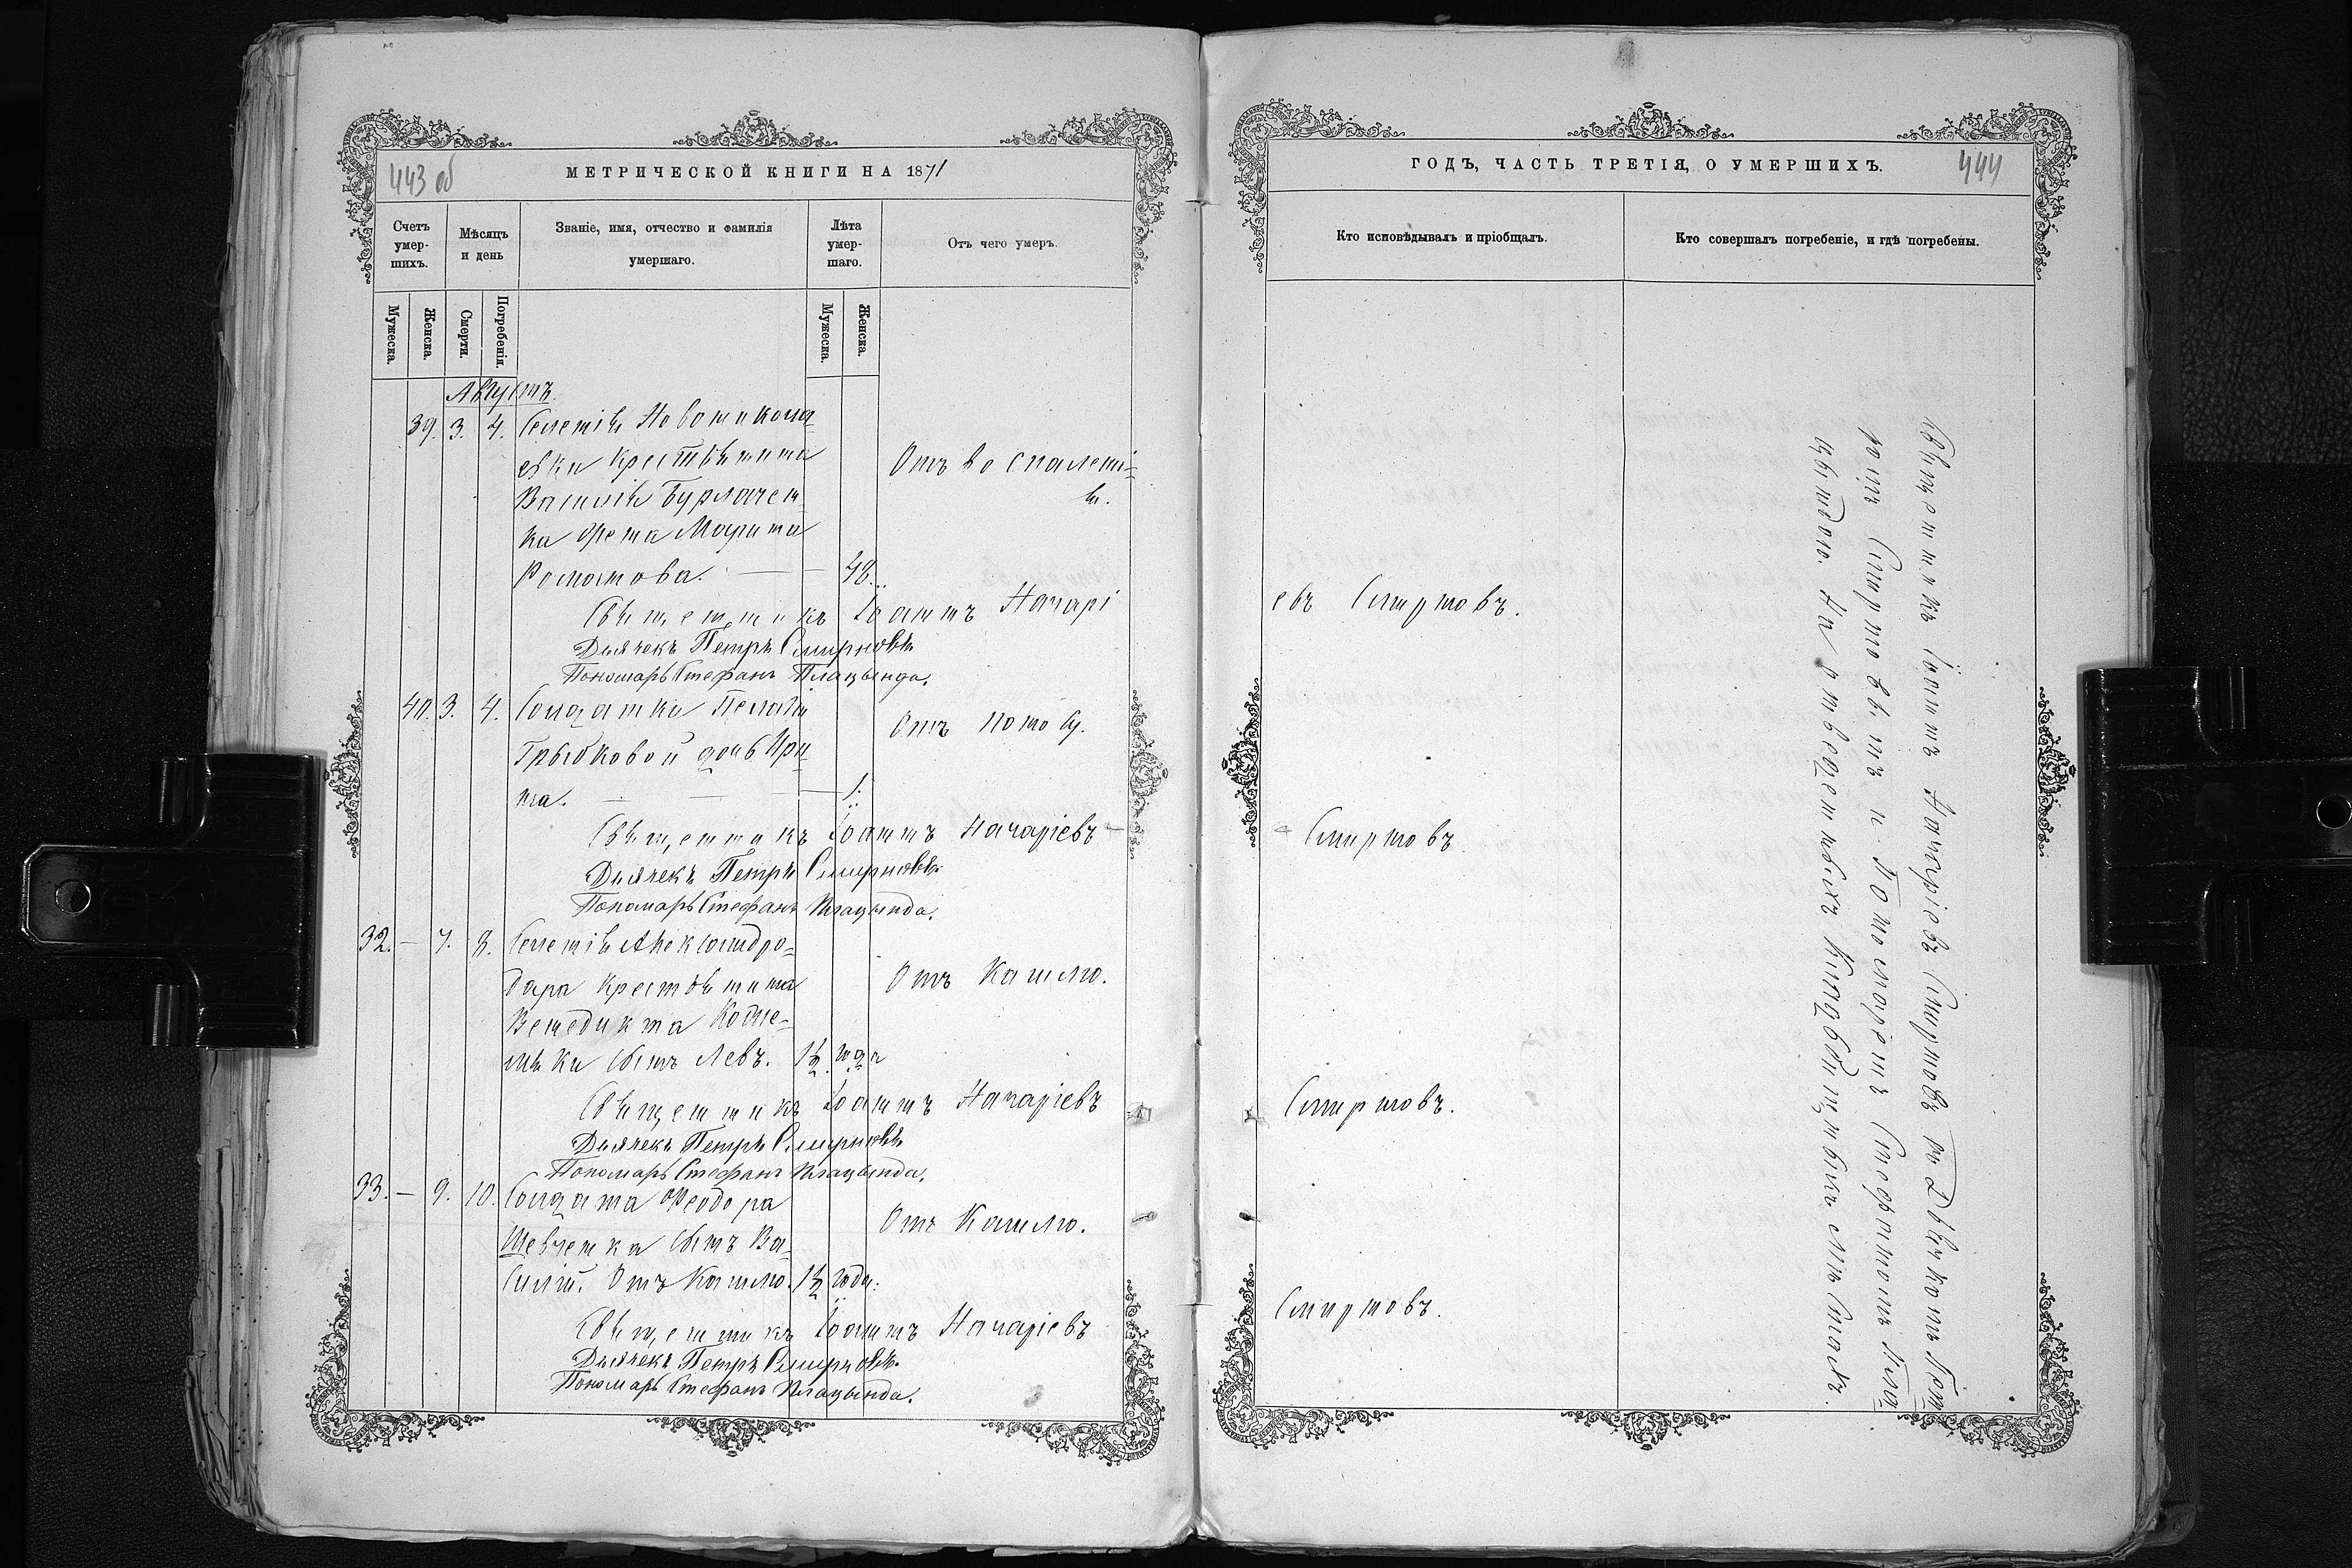 443 об
МЕТРИЧЕСКОЙ КНИГИ НА 1871
Счетъ умер-шихъ.
Мѣсяцъ и день
Званіе, имя, отчество и фамилія умершаго.
Лѣта умер-шаго.
Отъ чего умеръ.
Мужеска.
Женска.
Смерти.
Погребенія.
Мужеска.
Женска.
Августъ.
39. 3. 4. Селенія Новониколa-
евки крестьянина
Василія Бурлачен-
ка жена Марина
Романова. — — 48.
Отъ воспалені-
я.
Священникъ Іоаннъ Назарі
Дьячекъ Петръ Смирновъ
Пономарь Стефанъ Плацында.
40. 3. 4. Солдатки Пелагіи
Грыбковой дочь Ири-
на. — — — 1.
Отъ поносу.
Священникъ Іоаннъ Назаріевъ
Дьячекъ Петръ Смирновъ
Пономарь Стефанъ Плацында.
32. — 7. 8. Селенія Александро-
дара крестьянина
Венедикта
сынъ Левъ. 1½ года
Отъ кашлю.
Священникъ Іоаннъ Назаріевъ
Дьячекъ Петръ Смирновъ
Пономарь Стефанъ Плацында.
33. — 9. 10. Солдата Феодора
Шевченка сынъ Ва-
силій. Отъ кашлю. 1½ года.
Отъ кашлю.
Священникъ Іоаннъ Назаріевъ
Дьячекъ Петръ Смирновъ
Пономарь Стефанъ Плацында.
ГОДЪ, ЧАСТЬ ТРЕТІЯ, О УМЕРШИХЪ.
444
Кто исповѣдывалъ и пріобщалъ.
Кто совершалъ погребеніе, и гдѣ погребены.
евъ Смирновъ.
Смирновъ
Смирновъ.
Смирновъ.
Священникъ Іоаннъ Назаріевъ Смирновъ съ Дьячкомъ
Смирновымъ и Пономаремъ Стефаномъ Плац
цындою. На отведенныхъ кладбищныхъ мѣстахъ.